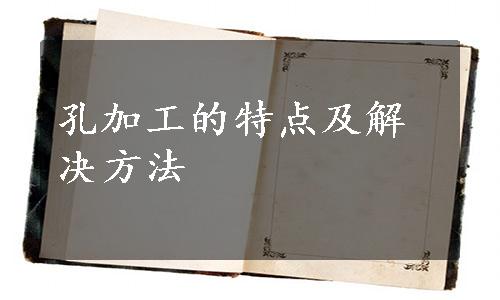 孔加工的特点及解
决方法